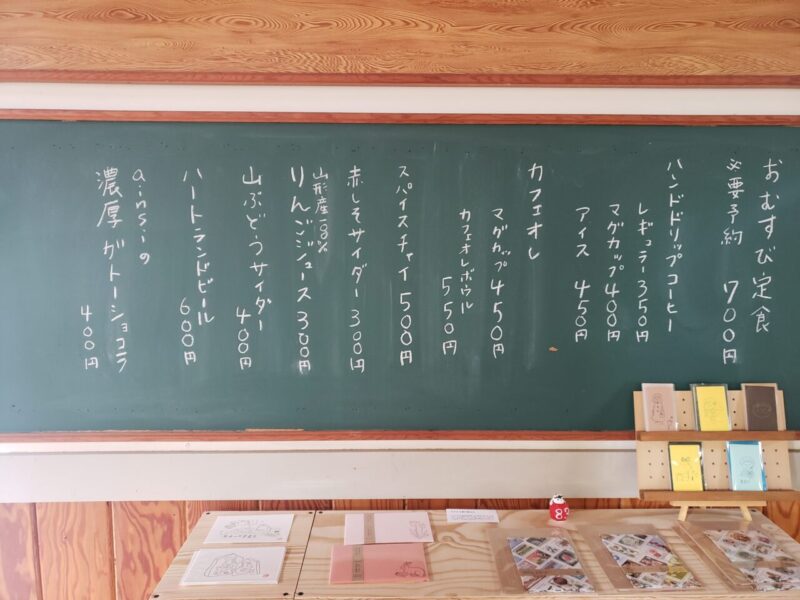 おむすび定食
必要予約 700円
ハンドドリップコーヒー
レギュラー350円
マグカップ400円
アイス 450円
カフェオレ
マグカップ 450円
カフェオレボウル 550円
スパイスチャイ 500円
赤しそサイダー 300円
山形産100%
りんごジュース 300円
山ぶどうサイダー 400円
ハートランドビール 600円
ainsiの
濃厚ガトーショコラ 400円